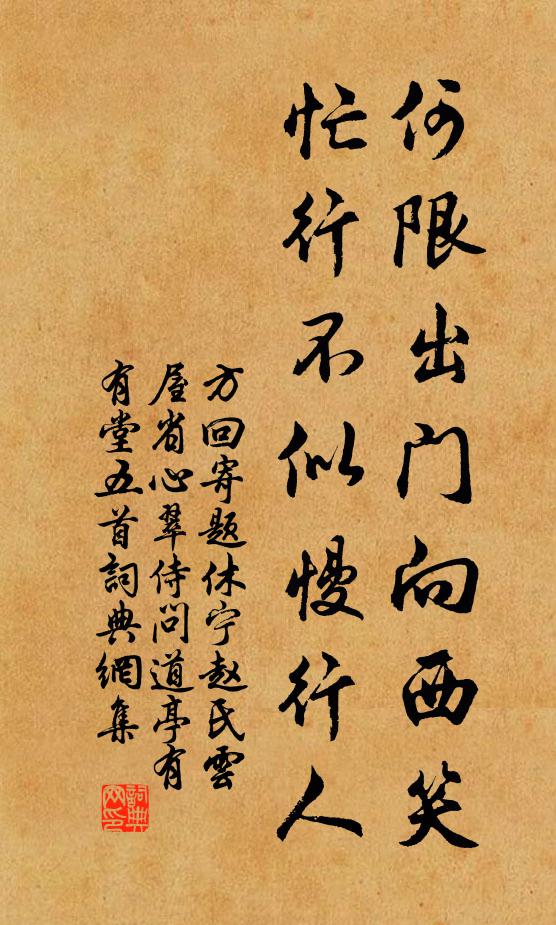 何限出门向西笑
忙行不似慢行人
方回寄题休宁赵氏雲
屋省心翠侍问道亭有
有堂五首詞典網集
詞典
网印